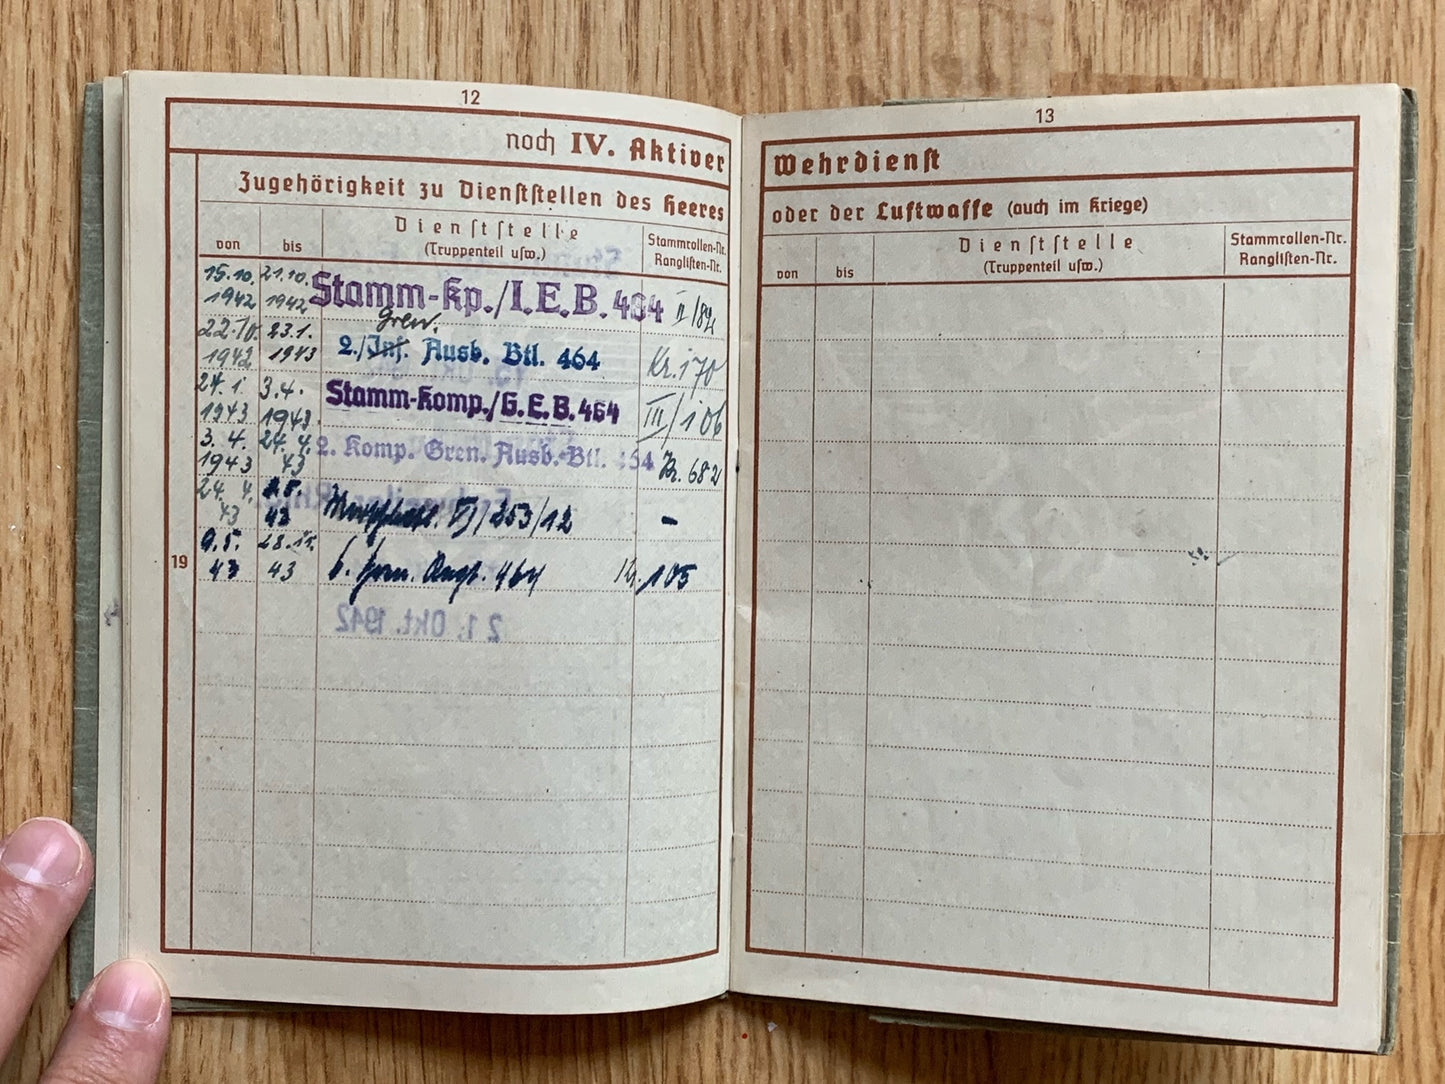 12
noch IV. Aktiver
Zugehörigkeit zu Dienststellen des Heeres
von
bis
Dienststelle
(Truppenteil usw.)
Stammrollen-Nr.
Ranglisten-Nr.
15.10. 21.10.
1942 1942 Stamm-Kp./I.E.B. 464 II/892
Gren.
22.10. 23.1.
1942 1943 2./Inf. Ausb. Btl. 464 Kr. 170
24.1. 3.4.
1943 1943. Stamm-Komp./G.E.B. 464 III/106
3.4. 24.4.
1943 43 2. Komp. Gren. Ausb.-Btl. 464 Kr. 682
24.4.
43 43 /253/12 –
9.5. 28.11.
43 43 6. 464 105
19
21. Okt. 1942
13
Wehrdienst
oder der Luftwaffe (auch im Kriege)
von
bis
Dienststelle
(Truppenteil usw.)
Stammrollen-Nr.
Ranglisten-Nr.